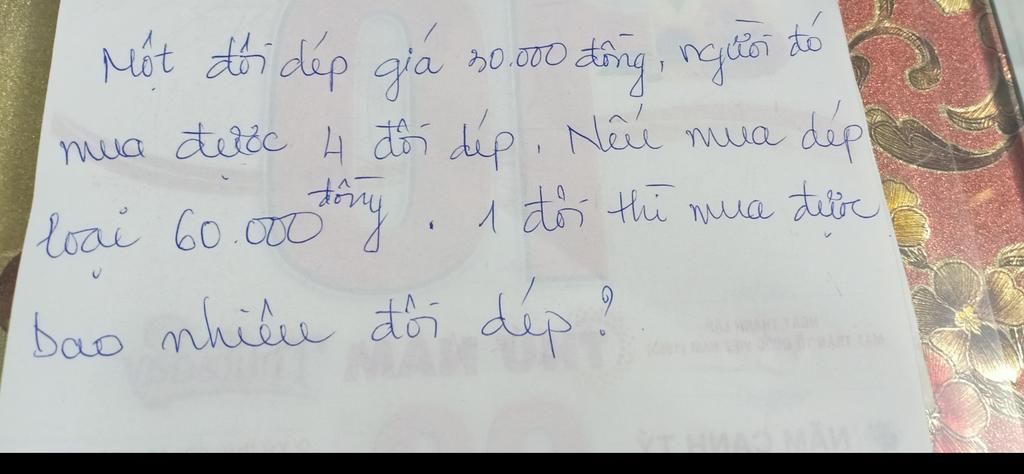 Một đôi dép giá 30.000 đồng, người đó
mua được 4 đôi dép. Nếu mua dép
loại 60.000 đồng. 1 đôi thì mua được
bao nhiêu đôi dép?